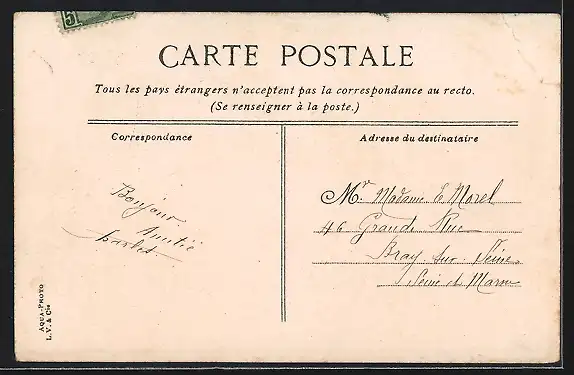 5
CARTE POSTALE
Tous les pays étrangers n'acceptent pas la correspondance au recto.
(Se renseigner à la poste.)
Correspondance
Bonjour
Amitié
Adresse du destinataire
Mr Madame E Morel
46 Grande Rue
Bray sur Seine
Seine et Marne
AQUA-PHOTO
L. V. & Cie